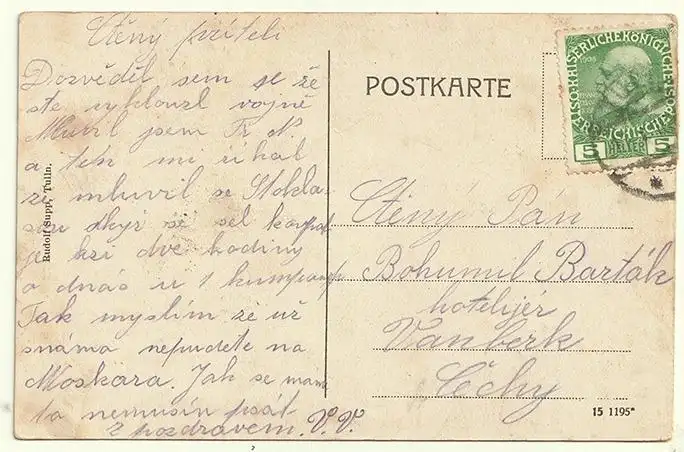 Ctěný příteli
Dozvěděl sem se že
ste vyklouzl vojně
Mluvil jsem Fr. N.
a ten mi říkal
že mluvil se
když se šel koupat
je ksi dvě hodiny
a dnás u 1 kumpanp
Tak myslím že už
snáma nepudete na
Moskara. Jak se mám
to nemusín psát
z pozdravem. V. V.
Rudolf Supp, Tulln.
POSTKARTE
KAISERLICHE KÖNIGLICHE
ÖSTERREICHISCHE POST
5 HELLER 5
Ctěný Pán
Bohumil Barták
hotelijér
Vamberk
Čechy
15 1195*